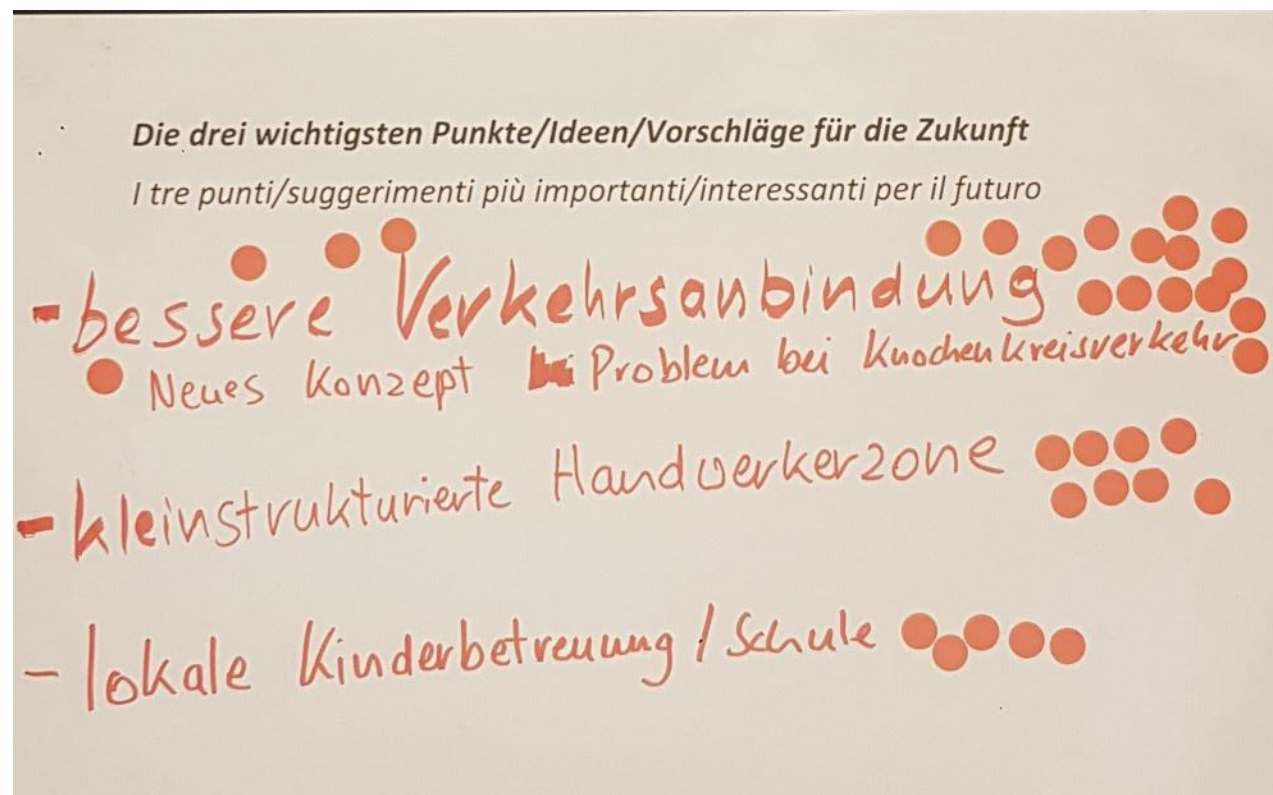 Die drei wichtigsten Punkte/Ideen/Vorschläge für die Zukunft
I tre punti/suggerimenti più importanti/interessanti per il futuro
- bessere Verkehrsanbindung
Neues Konzept Problem bei Knochenkreisverkehr
- kleinstrukturierte Handwerkerzone
- lokale Kinderbetreuung / Schule